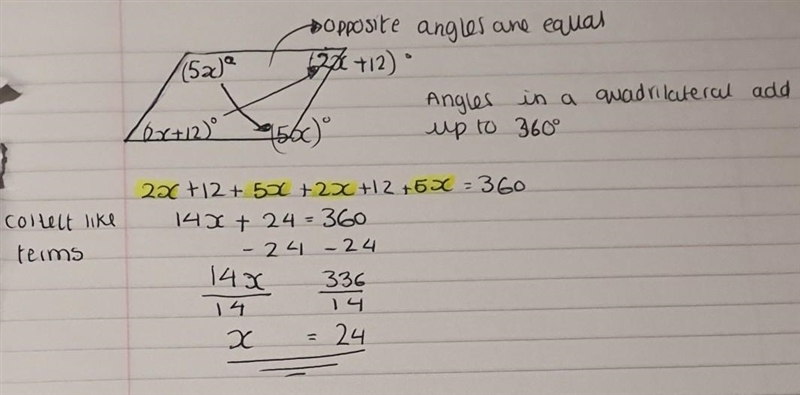 opposite angles are equal
(5x)°
(2x+12)°
(2x+12)°
(5x)°
Angles in a quadrilateral add
up to 360°
2x+12+5x+2x+12+5x=360
Collect like
terms
14x+24=360
-24 -24
14x/14 336/14
x = 24